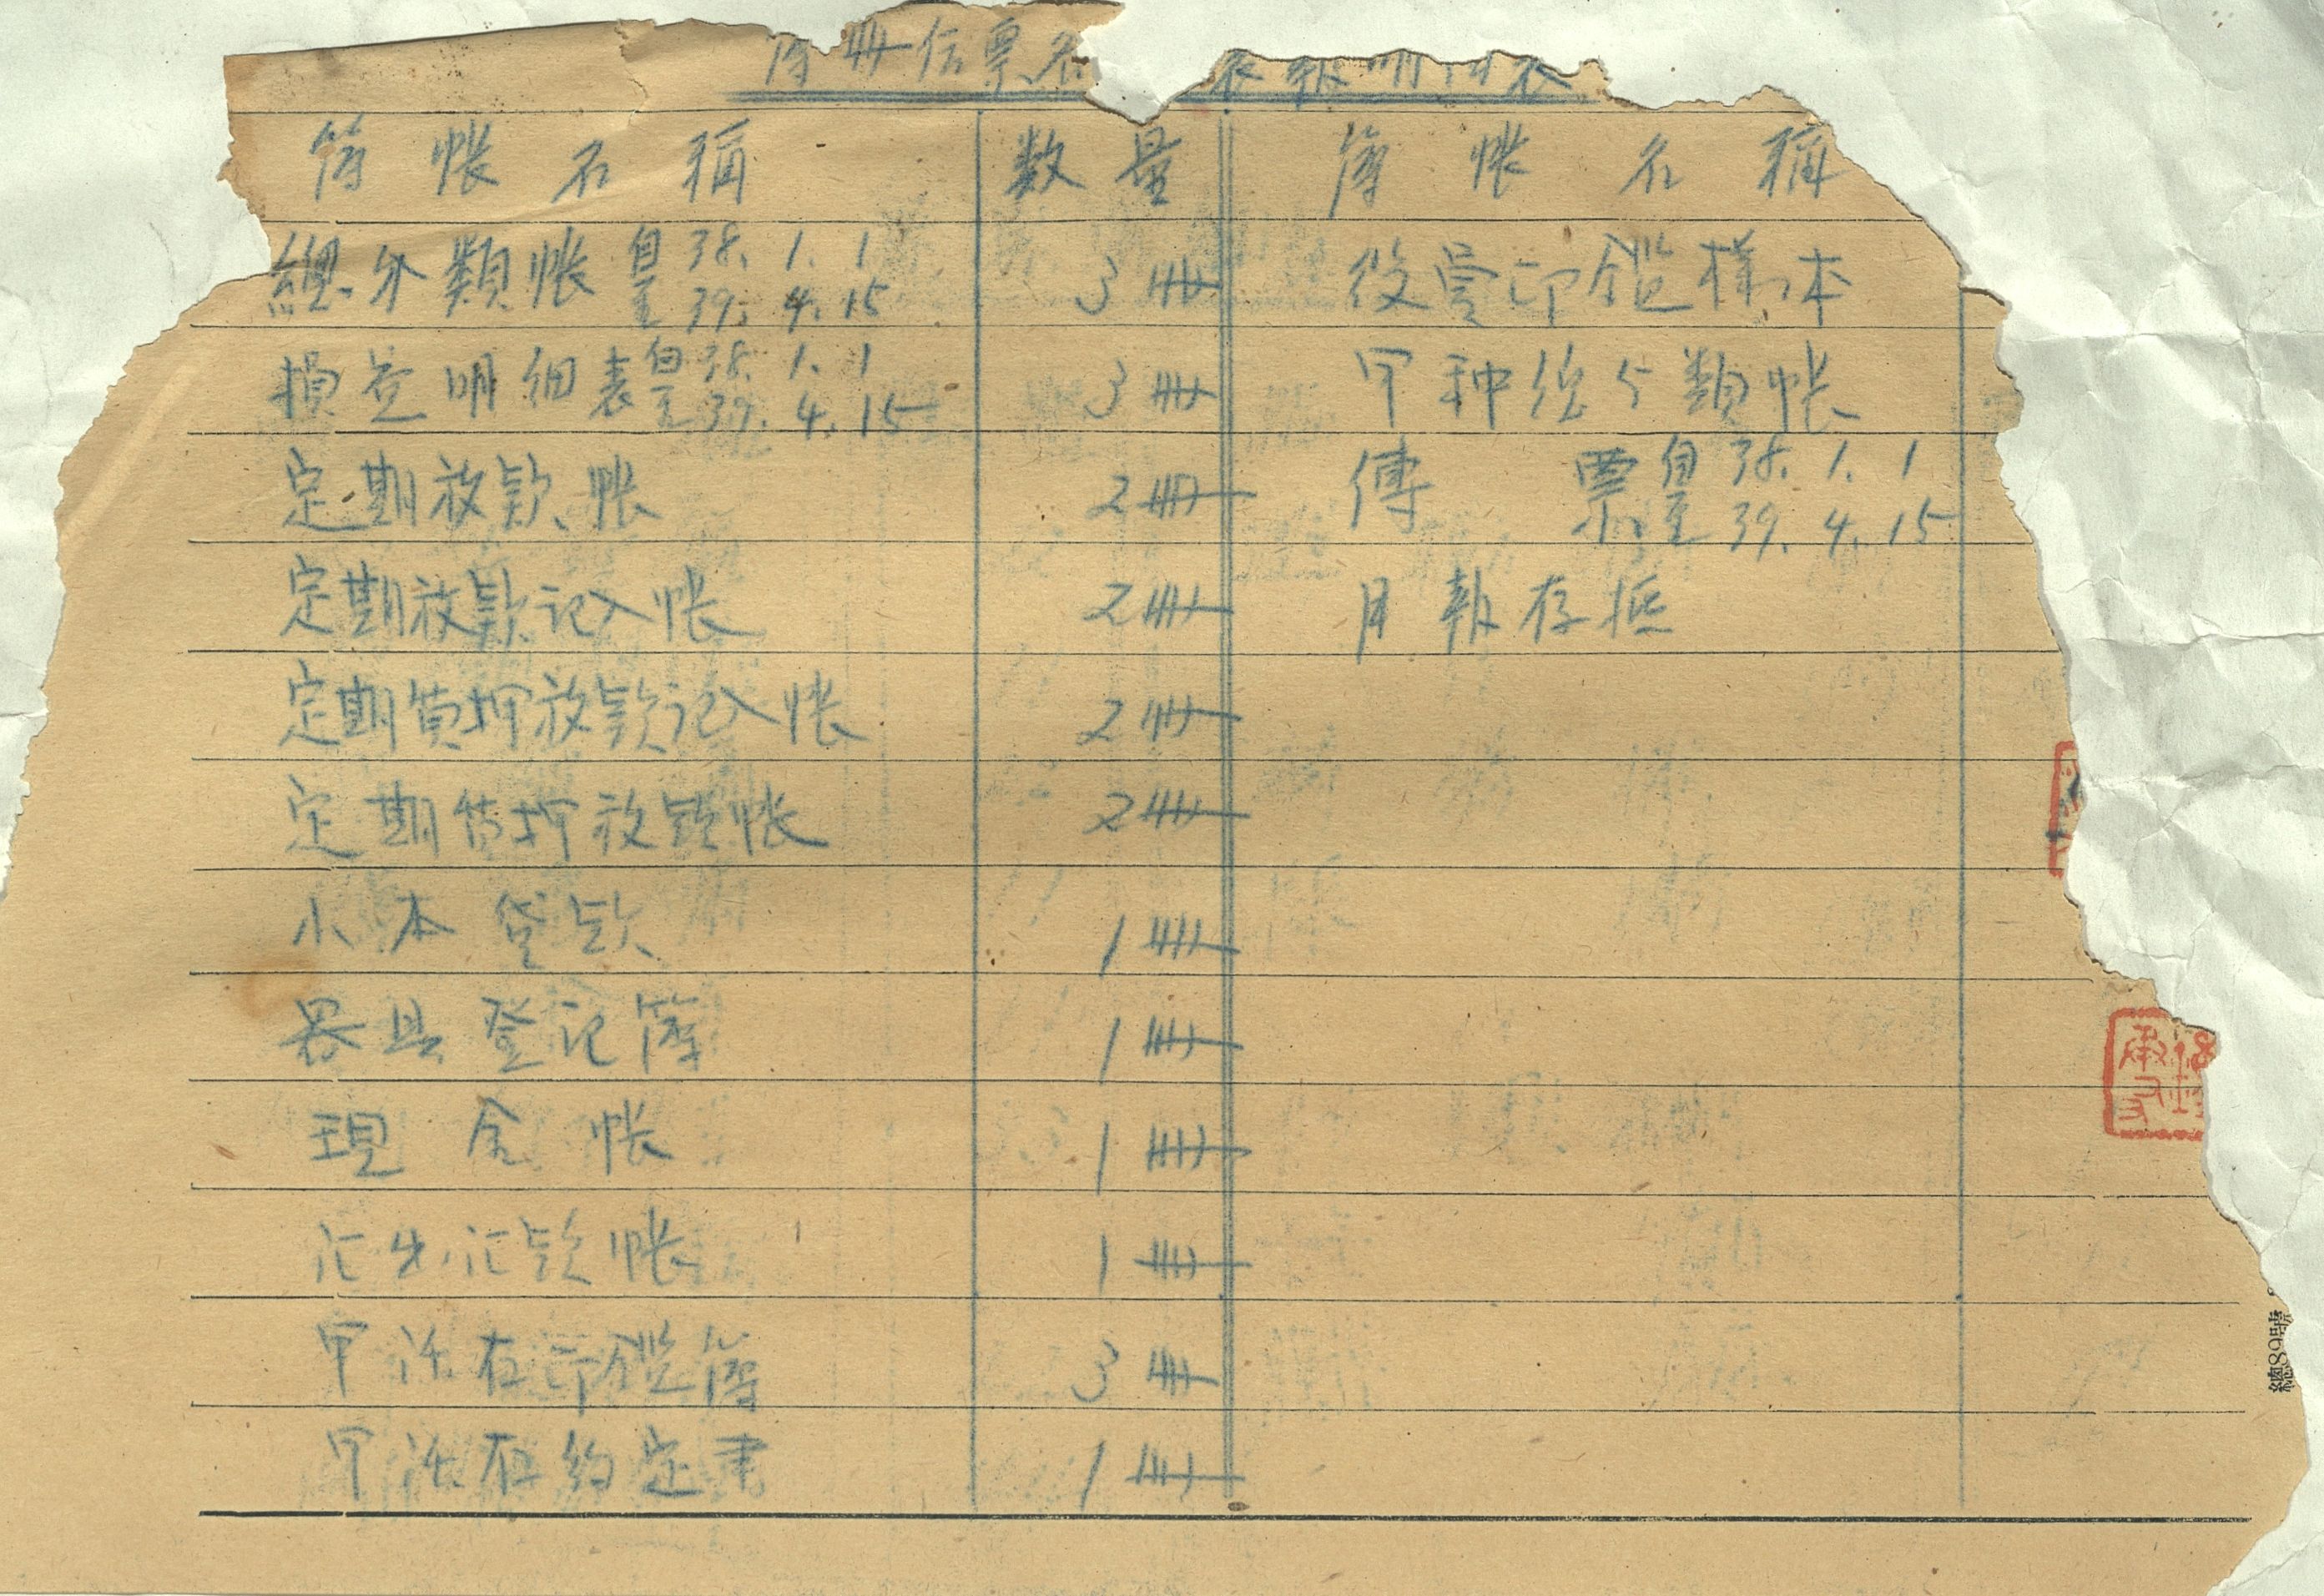 簿冊传票名 表報明细表
簿帐名稱 数量 簿帐名稱
總分類帐 自38. 1. 1 至39. 4. 15 3冊
损益明细表 自38. 1. 1 至39. 4. 15 3冊
定期放款帐 2冊
定期放款记入帐 2冊
定期质押放款记入帐 2冊
定期质押放款帐 2冊
小本贷款 1冊
器具登记簿 1冊
現金帐 1冊
汇出汇款帐 1冊
甲活存印鑑簿 3冊
甲活存约定书 1冊
印鑑樣本
甲种 類帐
傳票 自38. 1. 1 至39. 4. 15
月報存底
總89號